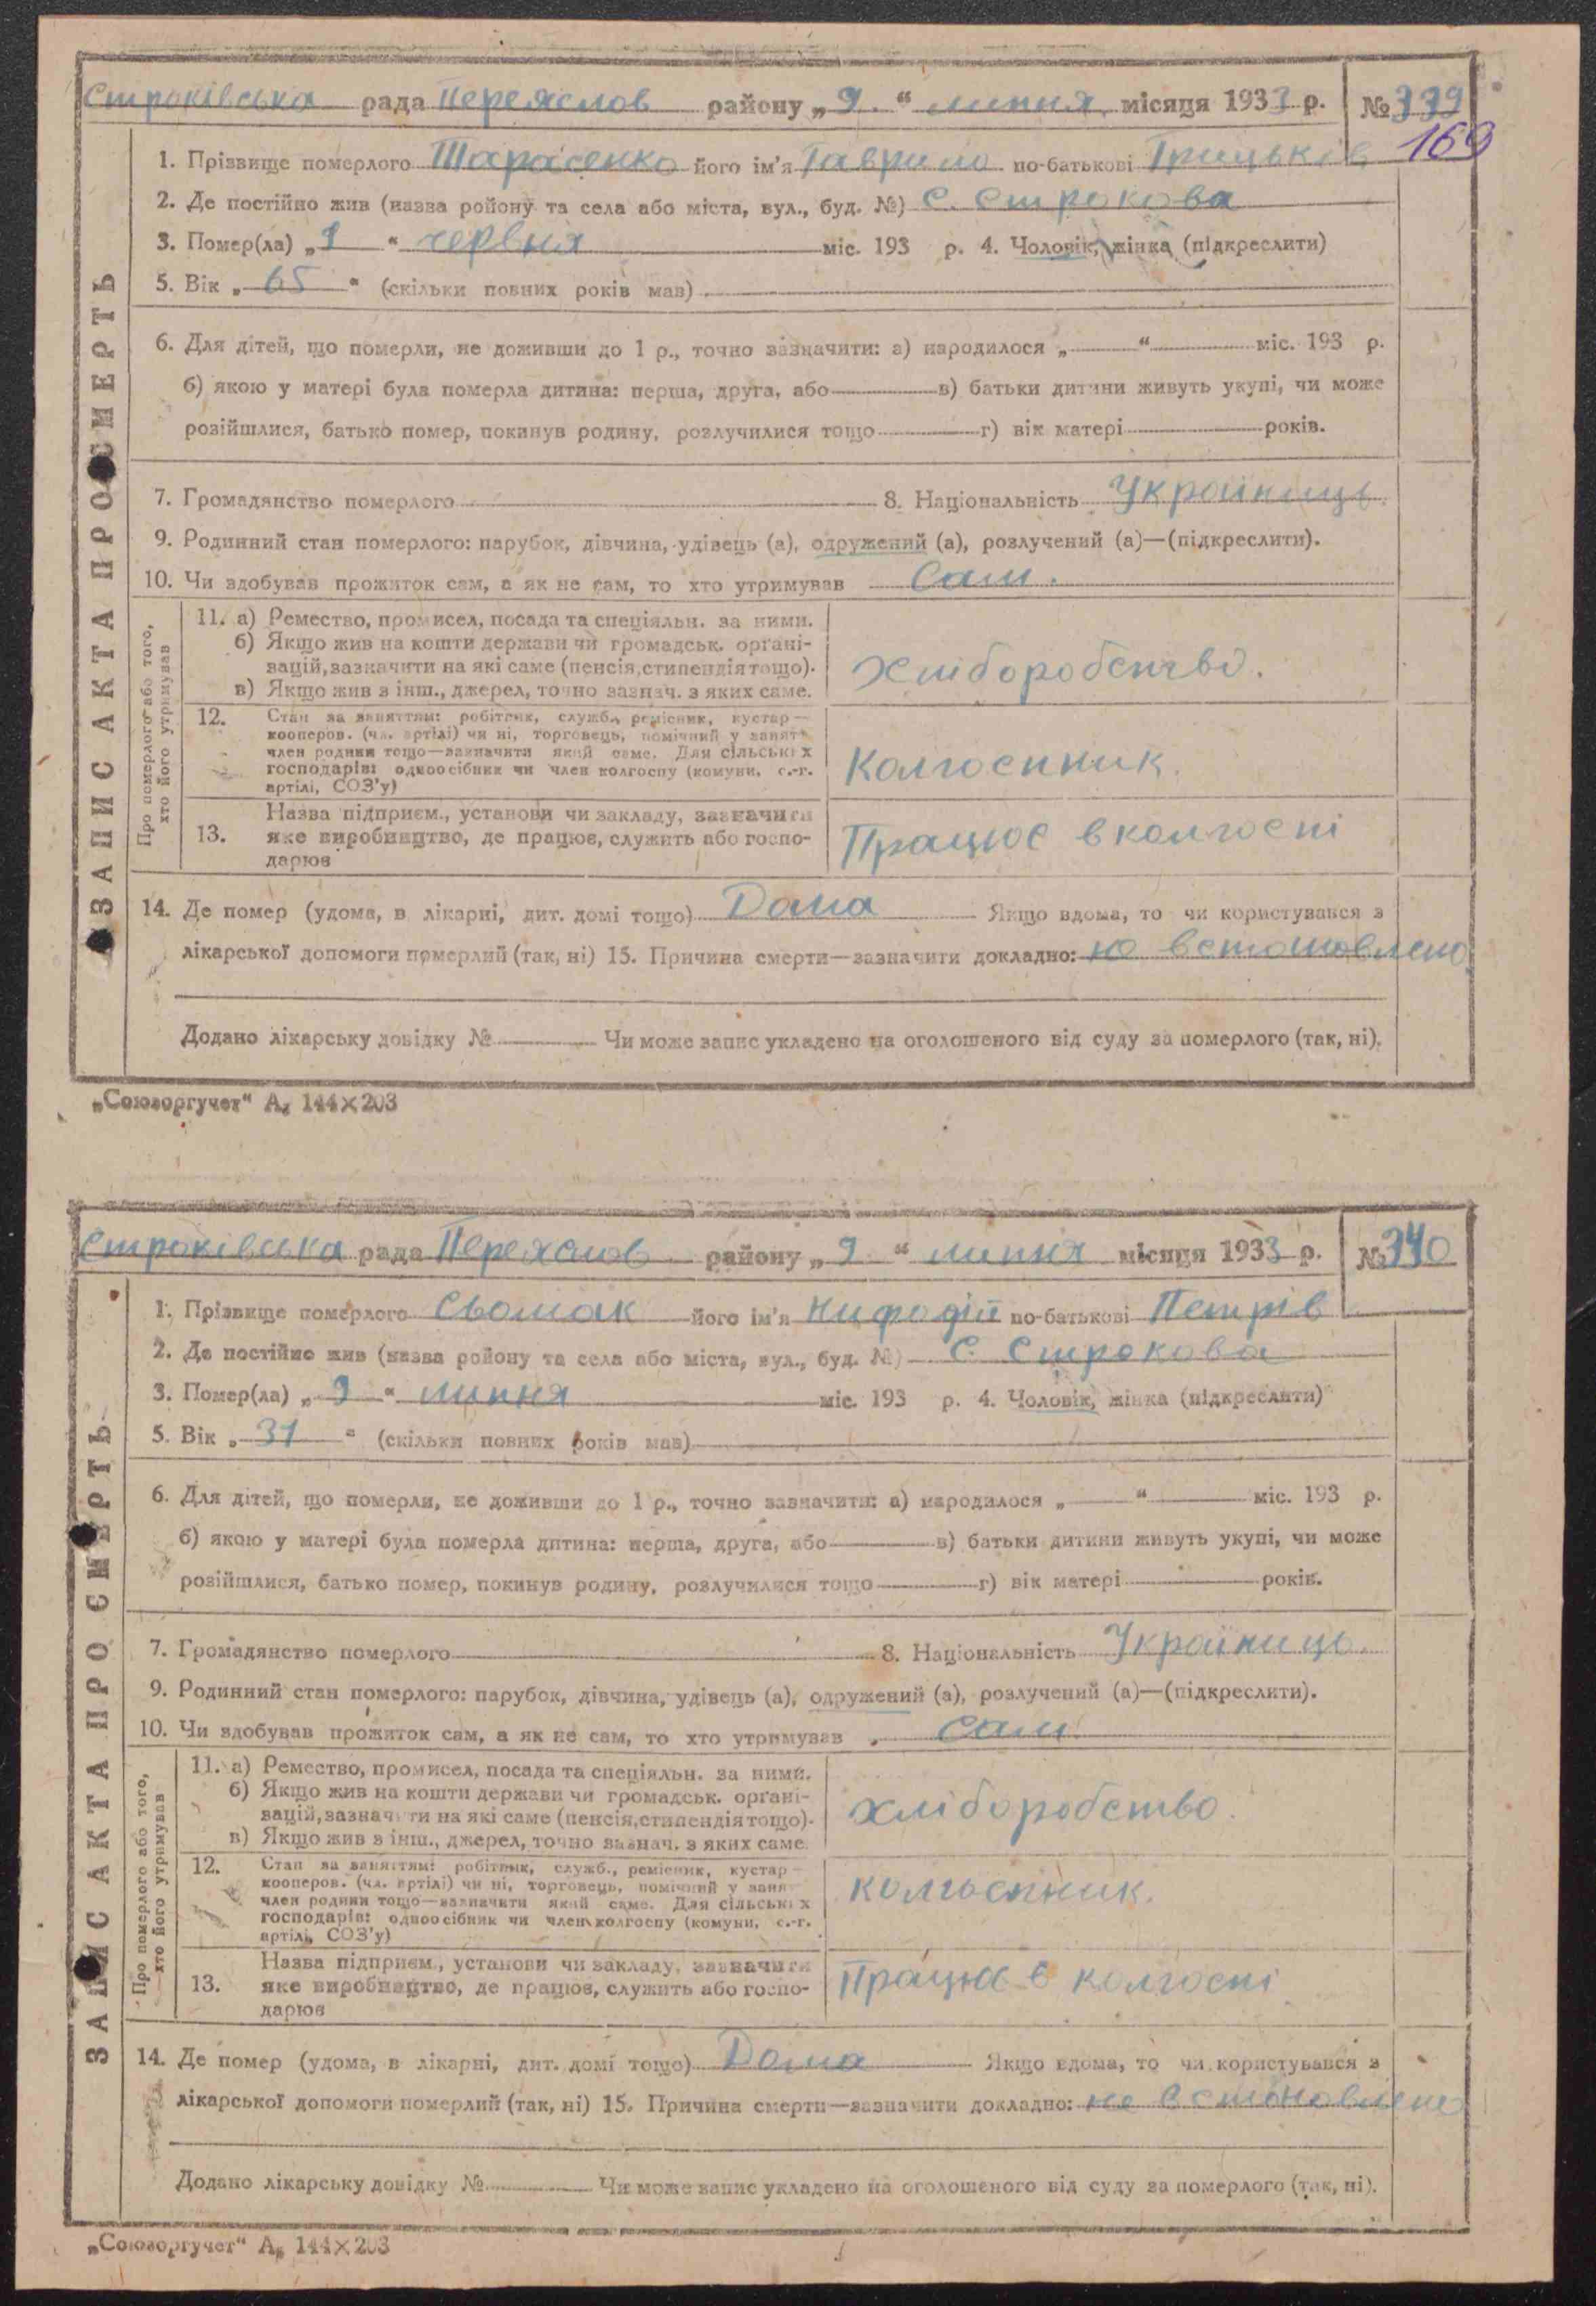 Строківська рада Переяслов району „9.“ липня місяця 1933 р. № 339
169
1. Прізвище померлого Тарасенко його ім'я Гаврило по-батькові Грицьків
2. Де постійно жив (назва ройону та села або міста, вул., буд. №) С. Строкова
3. Помер(ла) „9“ червня міс. 193 р. 4. Чоловік, жінка (підкреслити)
5. Вік „65“ (скільки повних років мав)
6. Для дітей, що померли, не доживши до 1 р., точно зазначити: а) народилося „ “ міс. 193 р.
б) якою у матері була померла дитина: перша, друга, або в) батьки дитини живуть укупі, чи може
розійшлися, батько помер, покинув родину, розлучилися тощо г) вік матері років.
7. Громадянство померлого 8. Національність Українець.
9. Родинний стан померлого: парубок, дівчина, удівець (а), одружений (а), розлучений (а)—(підкреслити).
10. Чи здобував прожиток сам, а як не сам, то хто утримував Сам.
ЗАПИС АКТА ПРО СМЕРТЬ
Про померлого або того,
хто його утримував
11. а) Ремество, промисел, посада та спеціяльн. за ними.
б) Якщо жив на кошти держави чи громадськ. органі-
зацій, зазначити на які саме (пенсія, стипендія тощо).
в) Якщо жив з інш., джерел, точно зазнач. з яких саме.
Хліборобство.
12. Стан за заняттям: робітник, служб., ремісник, кустар—
кооперов. (чл. артілі) чи ні, торговець, помічний у занят
член родини тощо—зазначити який саме. Для сільських
господарів: одноосібник чи член колгоспу (комуни, с.-г.
артілі, СОЗ'у)
Колгоспник.
13. Назва підприєм., установи чи закладу, зазначити
яке виробництво, де працює, служить або госпо-
дарює
Працює в колгоспі
14. Де помер (удома, в лікарні, дит. домі тощо) Дома Якщо вдома, то чи користувався з
лікарської допомоги померлий (так, ні) 15. Причина смерти—зазначити докладно: не встановлено
Додано лікарську довідку № Чи може запис укладено на оголошеного від суду за померлого (так, ні).
„Союзоргучет“ А₅ 144×203
Строківська рада Переяслов району „9“ липня місяця 1933 р. № 340
1. Прізвище померлого Сьомак його ім'я Нифодій по-батькові Петрів
2. Де постійно жив (назва ройону та села або міста, вул., буд. №) С. Строкова
3. Помер(ла) „9“ липня міс. 193 р. 4. Чоловік, жінка (підкреслити)
5. Вік „31“ (скільки повних років мав)
6. Для дітей, що померли, не доживши до 1 р., точно зазначити: а) народилося „ “ міс. 193 р.
б) якою у матері була померла дитина: перша, друга, або в) батьки дитини живуть укупі, чи може
розійшлися, батько помер, покинув родину, розлучилися тощо г) вік матері років.
7. Громадянство померлого 8. Національність Українець.
9. Родинний стан померлого: парубок, дівчина, удівець (а), одружений (а), розлучений (а)—(підкреслити).
10. Чи здобував прожиток сам, а як не сам, то хто утримував сам
ЗАПИС АКТА ПРО СМЕРТЬ
Про померлого або того,
хто його утримував
11. а) Ремество, промисел, посада та спеціяльн. за ними.
б) Якщо жив на кошти держави чи громадськ. органі-
зацій, зазначити на які саме (пенсія, стипендія тощо).
в) Якщо жив з інш., джерел, точно зазнач. з яких саме.
хліборобство.
12. Стан за заняттям: робітник, служб., ремісник, кустар—
кооперов. (чл. артілі) чи ні, торговець, помічний у заня
член родини тощо—зазначити який саме. Для сільських
господарів: одноосібник чи член колгоспу (комуни, с.-г.
артілі, СОЗ'у)
колгоспник.
13. Назва підприєм., установи чи закладу, зазначити
яке виробництво, де працює, служить або госпо-
дарює
Працює в колгоспі
14. Де помер (удома, в лікарні, дит. домі тощо) Дома Якщо вдома, то чи користувався з
лікарської допомоги померлий (так, ні) 15. Причина смерти—зазначити докладно: не встановлено
Додано лікарську довідку № Чи може запис укладено на оголошеного від суду за померлого (так, ні).
„Союзоргучет“ А₅ 144×203